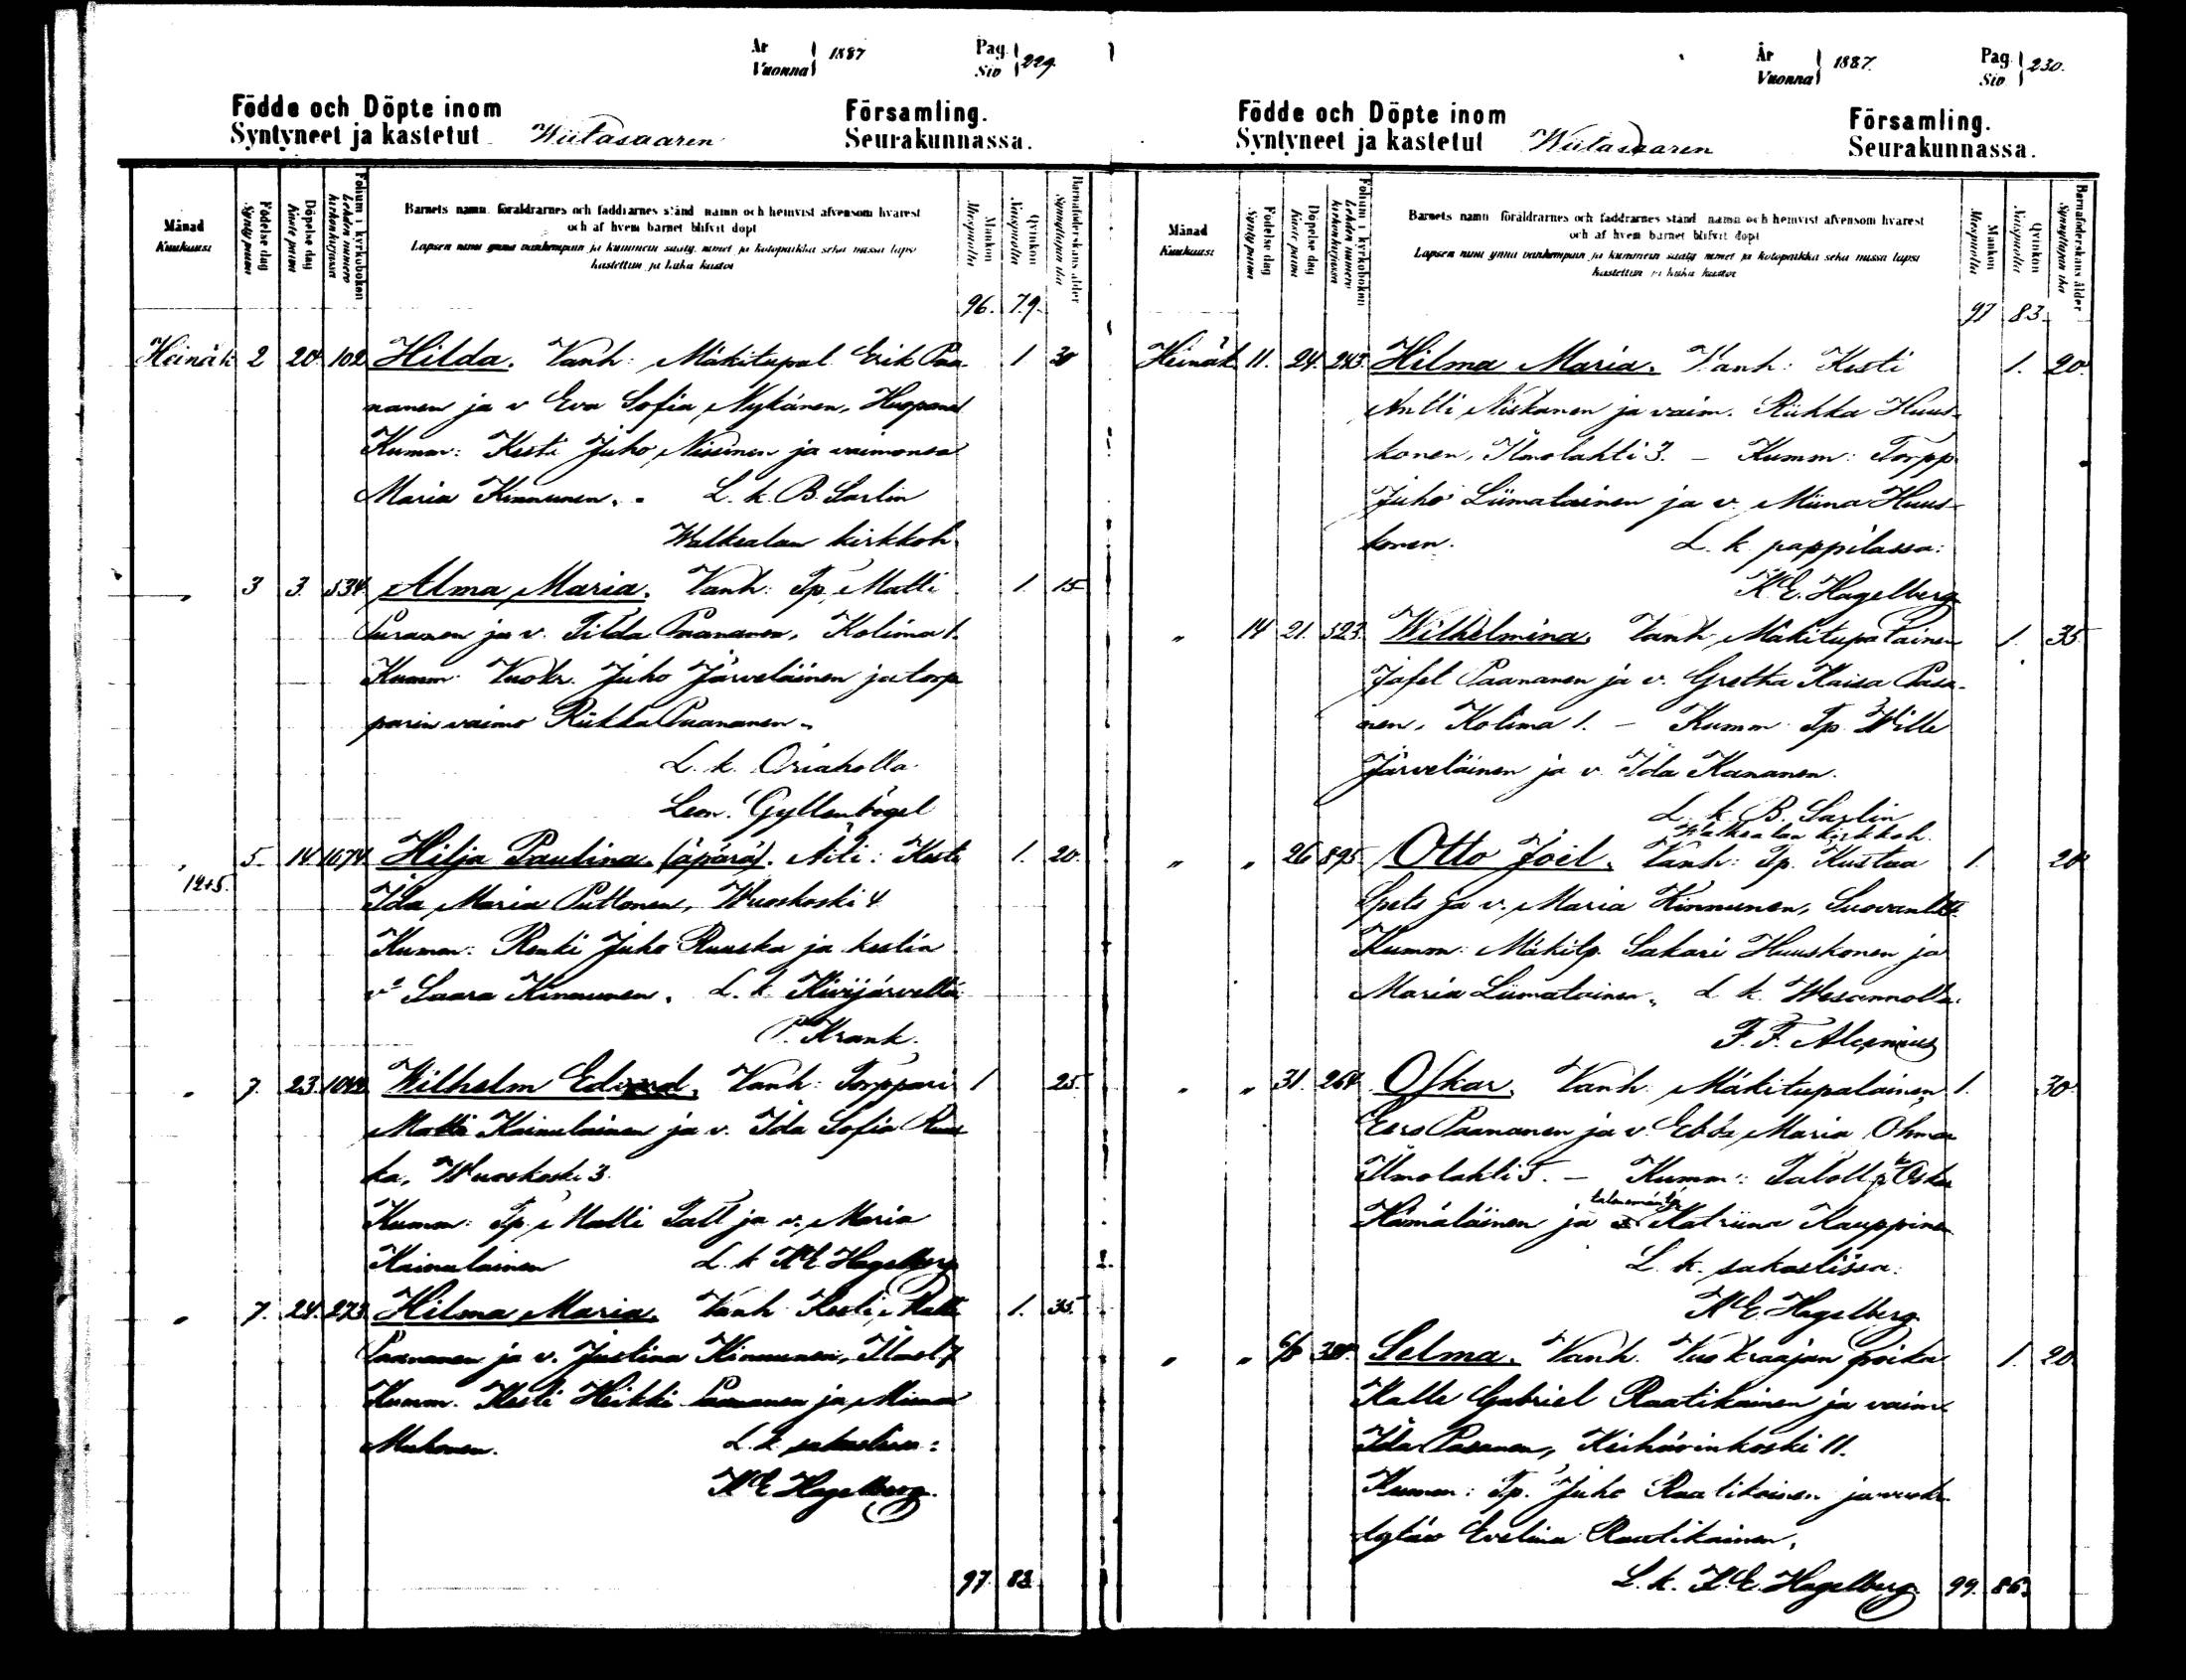 År Vuonna 1887 Pag. Siv 229.
Födde och Döpte inom Församling.
Syntyneet ja kastetut Wiitasaaren Seurakunnassa.
Månad Kuukausi
Födelse dag Synty päivä
Döpelse dag Kaste päivä
Folium i kyrkoboken Lehden numero kirkonkirjassa
Barnets namn, föräldrarnes och faddrarnes stånd namn och hemvist äfvensom hvarest
och af hvem barnet blifvit döpt
Lapsen nimi ynnä vanhempain ja kummein sääty, nimet ja kotopaikka sekä missä lapsi
kastettiin ja kuka kastoi
Mankön Miespuolta
Qvinkön Naispuolta
Barnaföderskans ålder Synnyttäjän ikä
96. 79.
Heinäk. 2 20 102 Hilda. Vanh: Mäkitupal. Erik Paa- 1 30
nanen ja v Eva Sofia Nykänen, Huopana
Kumm: Kesti Juho Nissinen ja vaimonsa
Maria Kinnunen. L. k. B. Sarlin
Walkealan kirkkoh.
" 3 3. 534. Alma Maria. Vanh: Tp. Matti 1. 15
Puranen ja v. Tilda Paananen, Kolima 1.
Kumm: Vuokr. Juho Järveläinen ja torp
parin vaimo Riikka Paananen.
L. k. Oriaholla
Leon. Gyllenbögel
" 5. 14 1074 Hilja Paulina (äpärä). Äiti: Kesti 1. 20.
12+5. Ida Maria Puttonen, Wuoskoski 4
Kumm: Renki Juho Ruuska ja kestin
vo Saara Kinnunen. L. k. Kivijärveltä
P. Krank.
" 7. 23 1042 Wilhelm Edvard. Vanh: Torppari 1 25.
Matti Kainulainen ja v. Ida Sofia Ruus
ka, Wuoskoski 3.
Kumm: Tp. Matti Tall ja v. Maria
Kainulainen L. k. K E Hagelberg
" 7. 24. 273. Hilma Maria. Vanh: Kesti Matti 1. 35.
Paananen ja v. Justina Kinnunen, Ilmol. 7
Kumm. Kesti Heikki Paananen ja Miina
Muhonen. L. k. sakastissa:
K E Hagelberg.
97. 83.
År Vuonna 1887. Pag. Siv 230.
Födde och Döpte inom Församling.
Syntyneet ja kastetut Wiitasaaren Seurakunnassa.
Månad Kuukausi
Födelse dag Synty päivä
Döpelse dag Kaste päivä
Folium i kyrkoboken Lehden numero kirkonkirjassa
Barnets namn föräldrarnes och faddrarnes stånd namn och hemvist äfvensom hvarest
och af hvem barnet blifvit döpt
Lapsen nimi ynnä vanhempain ja kummein sääty nimet ja kotopaikka sekä missä lapsi
kastettiin ja kuka kastoi
Mankön Miespuolta
Qvinkön Naispuolta
Barnaföderskans ålder Synnyttäjän ikä
97 83.
Heinäk. 11. 24. 243. Hilma Maria. Vanh: Kesti 1. 20.
Antti Niskanen ja vaim. Riikka Huus-
konen, Ilmolahti 3. – Kumm: Torpp.
Juho Liimatainen ja v. Miina Huus-
konen. L. k. pappilassa:
K. E. Hagelberg
" 14 21. 523. Wilhelmina. Vanh. Mäkitupalainen 1. 35
Jafet Paananen ja v. Gretha Kaisa Pasa-
nen, Kolima 1. – Kumm. Tp. Wille
Järveläinen ja v. Ida Kananen.
L. k. B. Sarlin
Walkealan kirkkoh.
" " 26 895. Otto Joel. Vanh: Tp. Kustaa 1. 20
Spets ja v. Maria Kinnunen, Suovanl.
Kumm: Mäkitp. Sakari Huuskonen ja
Maria Liimatainen. L. k. Wesannolla:
F. F. Alcenius
" " 31. 264 Oskar. Vanh. Mäkitupalainen 1. 30.
Eero Paananen ja v. Ebba Maria Ohman
Ilmolahti 5. – Kumm: Taloll. p. Oskar
Hämäläinen ja talonemäntä Katriina Kauppinen
L. k. sakastissa:
K E Hagelberg.
" " 6/8 Selma. Vanh. Vuokraajan poika 1. 20
Kalle Gabriel Raatikainen ja vaimo
Ida Pasanen, Keihärinkoski 11.
Kumm: Tp. Juho Raatikainen ja vuokr.
tytär Evelina Raatikainen.
L. k. K. E. Hagelberg. 99. 86.